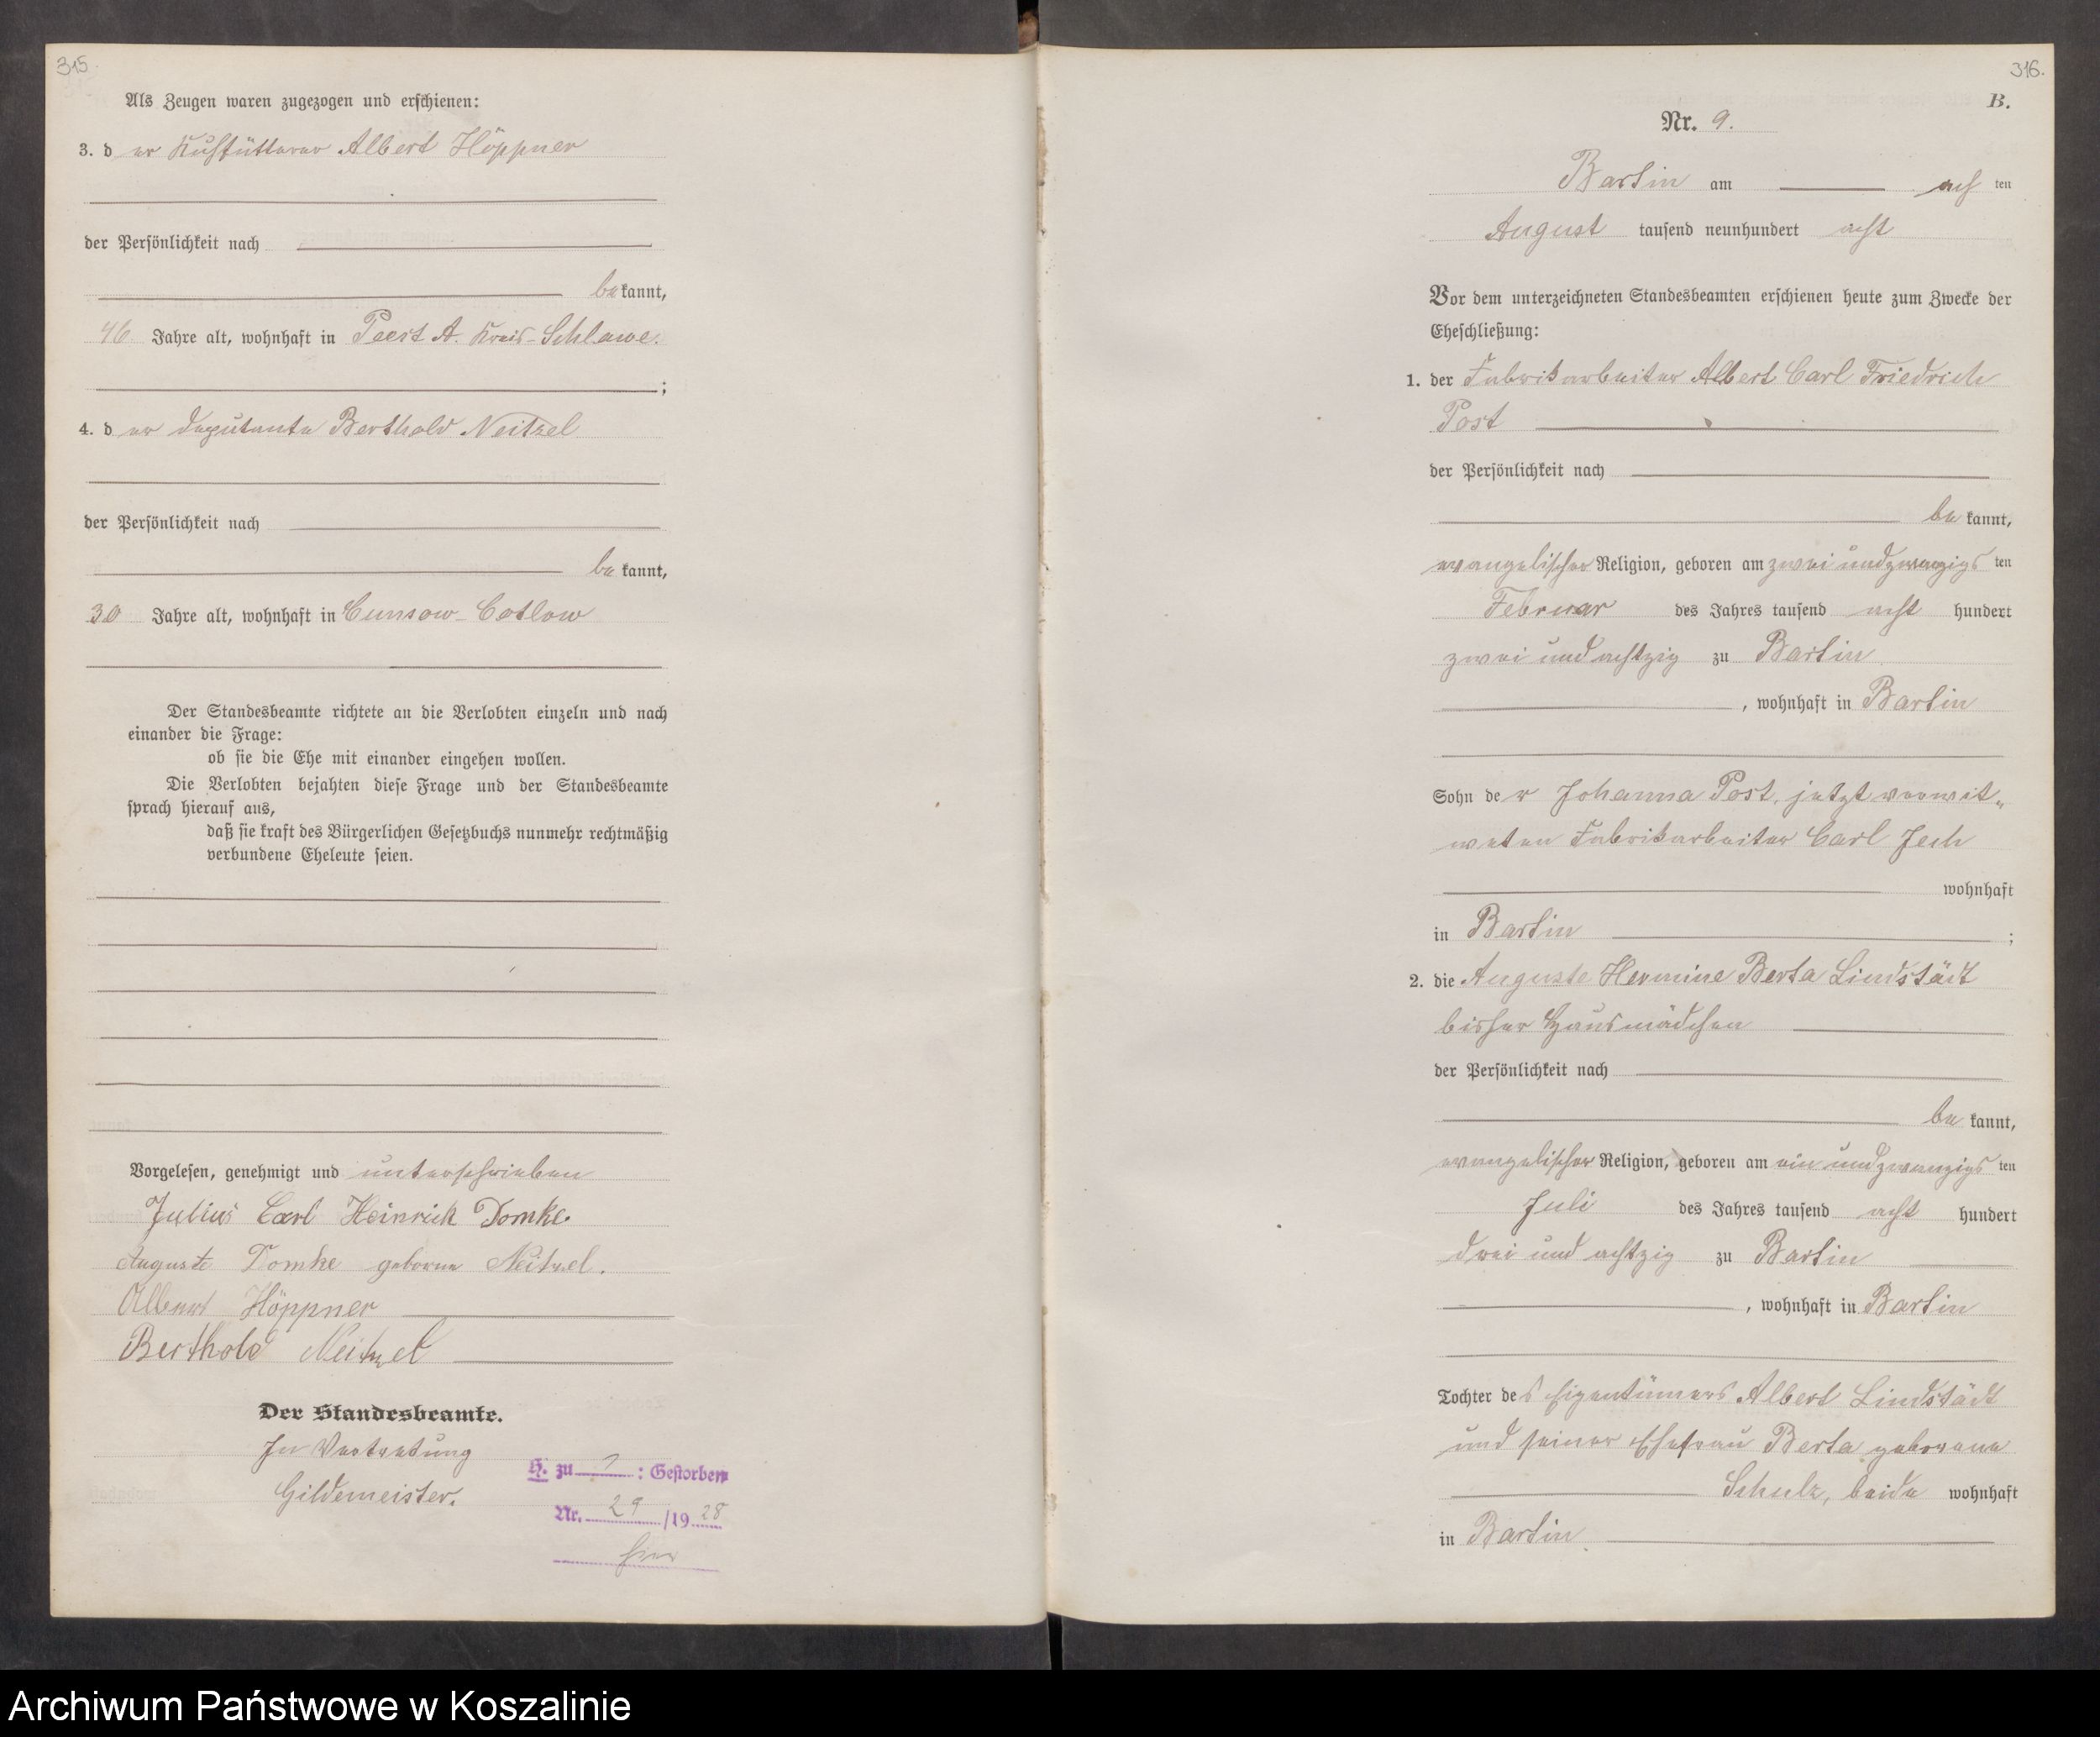 315.
Als Zeugen waren zugezogen und erschienen:
3. der Kuhfütterer Albert Höppner
der Persönlichkeit nach
bekannt,
46 Jahre alt, wohnhaft in Peest A. Kreis Schlawe.
;
4. der Deputante Berthold Neitzel
der Persönlichkeit nach
bekannt,
30 Jahre alt, wohnhaft in Cunsow-Cotlow
Der Standesbeamte richtete an die Verlobten einzeln und nach
einander die Frage:
ob sie die Ehe mit einander eingehen wollen.
Die Verlobten bejahten diese Frage und der Standesbeamte
sprach hierauf aus,
daß sie kraft des Bürgerlichen Gesetzbuchs nunmehr rechtmäßig
verbundene Eheleute seien.
Vorgelesen, genehmigt und unterschrieben
Julius Carl Heinrich Domke.
Auguste Domke geborne Neitzel.
Albert Höppner
Berthold Neitzel
Der Standesbeamte.
In Vertretung
Gildemeister.
H. zu : Gestorben
Nr. 29 /19 28
hier
316.
B.
Nr. 9.
Bartin am achten
August tausend neunhundert acht
Vor dem unterzeichneten Standesbeamten erschienen heute zum Zwecke der
Eheschließung:
1. der Fabrikarbeiter Albert Carl Friedrich
Post
der Persönlichkeit nach
bekannt,
evangelischer Religion, geboren am zwei und zwanzigsten
Februar des Jahres tausend acht hundert
zwei und achtzig zu Bartin
, wohnhaft in Bartin
Sohn der Johanna Post, jetzt verwit„
weten Fabrikarbeiter Carl Jech
wohnhaft
in Bartin ;
2. die Auguste Hermine Berta Lindstädt
bisher Hausmädchen
der Persönlichkeit nach
bekannt,
evangelischer Religion, geboren am ein und zwanzigsten
Juli des Jahres tausend acht hundert
drei und achtzig zu Bartin
, wohnhaft in Bartin
Tochter des Eigentümers Albert Lindstädt
und seiner Ehefrau Berta geborene
Schulz, beide wohnhaft
in Bartin
Archiwum Państwowe w Koszalinie